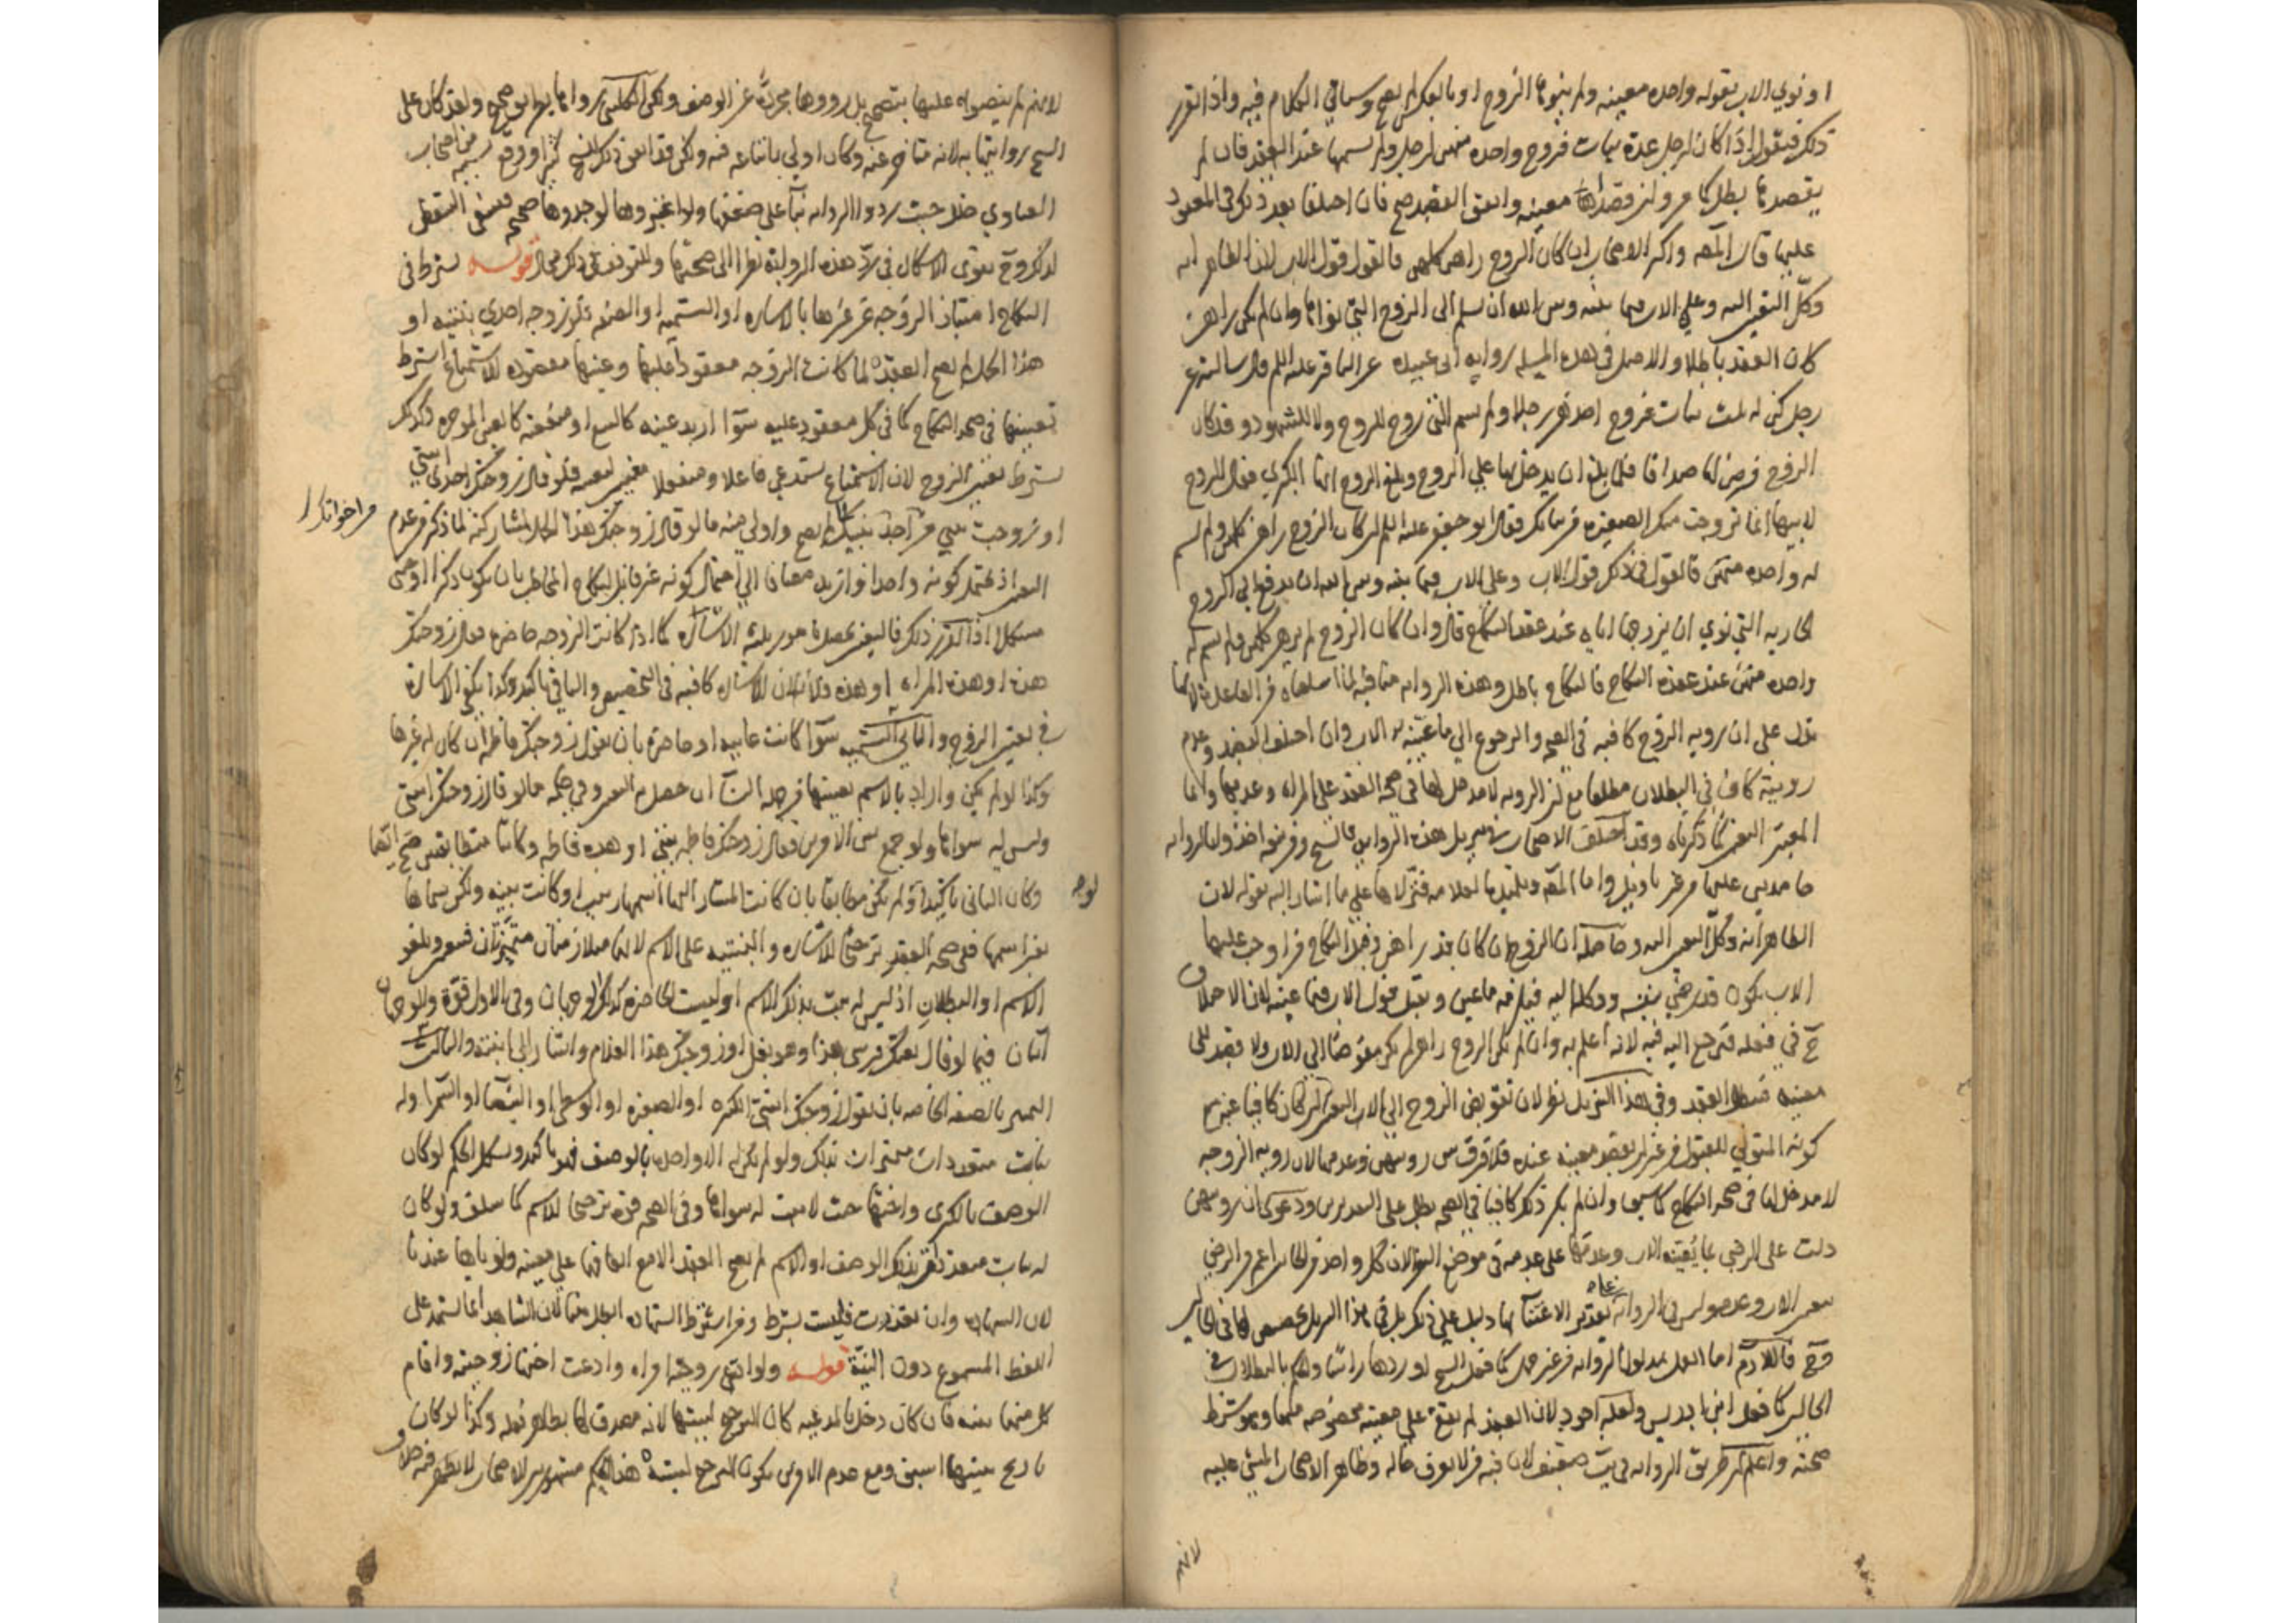 او نوى الاب بقوله واحده معينه ولم ينوها الزوج او بالعكس لم يصح وسياتي الكلام فيه واذا تقرر
ذلك فنقول اذا كان لرجل عدة بنات فزوج واحده منهن لرجل ولم يسمها عند العقد فان لم
يقصدها بطل كما مر وان قصداها معينه واتفق القصد صح فان اختلفا بعد ذلك في المعقود
عليها قال المص واكثر الاصحاب ان كان الزوج راهن كلهن فالقول قول الاب لان الظاهر انه
وكل التعيين اليه وعلى الاب فيما بينه وبين الله ان يسلم الى الزوج التي نواها وان لم يكن راهن
كان العقد باطلا والاصل في هذه المسئله روايه ابي عبيده عن الباقر عليه السلم قال سالته عن
رجل كن له ثلث بنات فزوج احديهن رجلا ولم يسم التي زوج للزوج ولا للشهود وقد كان
الزوج فرض لها صداقا فلما بلغ ان يدخل بها على الزوج وبلغ الزوج انها الكبرى فقال الزوج
لابيها انما تزوجت منك الصغيره من بناتك فقال ابو جعفر عليه السلم ان كان الزوج راهن كلهن ولم يسم
له واحده منهن فالقول في ذلك قول الاب وعلى الاب فيما بينه وبين الله ان يدفع الى الزوج
الجاريه التي نوى ان يزوجها اياه عند عقد النكاح قال وان كان الزوج لم يرهن كلهن ولم يسم له
واحده منهن عند عقدة النكاح فالنكاح باطل وهذه الروايه منافيه لما اسلفناه من القاعده لانها
تدل على ان رويه الزوج كافيه في الصحه والرجوع الى ما عينه الاب وان اختلف القصد وعدم
رويته كاف في البطلان مطلقا مع ان الرويه لا مدخل لها في صحه العقد على المراه وعدمها وانما
المعتبر التعيين كما ذكرناه وقد اختلف الاصحاب في تنزيل هذه الروايه فالشيخ ومن تبعه اخذوا بالروايه
جامدين عليها من غير تاويل واما المص وتلميذه العلامه فنزلاها على ما اشار اليه بقوله لان
الظاهر انه وكل التعيين اليه وحاصله ان الزوج ان كان قد راهن فهذا النكاح قد اوجب عليها
الاب يكون قد رضي بتعيينه ووكله اليه فيلزمه ما عين ويقبل قول الاب فيما عينه لان الاختلاف
ح في فعله فيرجع اليه فيه لانه اعلم به وان لم يكن الزوج راهن لم يكن مفوضا الى الاب ولا قصد الى
معينه فبطل العقد وفي هذا التنزيل نظر لان تفويض الزوج الى الاب التعيين ان كان كافيا عن
كونه المتولي للقبول من غير ان يقصد معينه عنده فلا فرق بين رويتهن وعدمها لان رويه الزوجه
لا مدخل لها في صحه النكاح كما سبق وان لم يكن ذلك كافيا في الصحه بطل على التقديرين ودعوى ان رويتهن
دلت على الرضى بما يعينه الاب وعدمها على عدمه في موضع المنع لان كل واحد من الحالين اعم من الرضى
بتعيين الاب وعدمه وليس في الروايه على تقدير الاعتناء بها دليل على ذلك بل في هذا التنزيل تخصيص لها في الحالين
وح فاللازم اما العمل بمدلول الروايه من غير حمل كما فعل الشيخ او ردها راسا والحكم بالبطلان في
الحالين كما فعل ابن ادريس ولعله اجود لان العقد لم يقع على معينه مخصوصه منهما وهو شرط
صحته واعلم ان طريق الروايه ليست ضعيفه لان فيه من لا يعرف حاله وظاهر الاصحاب المبني عليه
لانهم
لانهم لم ينصوا عليها بتصحيح بل رووها مجردة عن الوصف ولكن الكليني رواها بطريق صحيح ولقد كان على
العماوي خلل حيث ردوا الروايه بناء على ضعفها ولو اعتبروها لوجدوها صحيحه فينبغي التيقظ
لذلك وح يقوى الاشكال في رد هذه الروايه نظرا الى صحتها وللتوقف في ذلك مجال قوله يشترط في
النكاح امتياز الزوجه عن غيرها بالاشاره او التسميه او الصفه فلو زوجه احدى بنتيه او
هذا الحمل لم يصح العقد لما كانت الزوجه معقودا عليها وعينها مقصوده للاستمتاع اشترط
تعيينها في صحه النكاح كما في كل معقود عليه سوآ اريد عينه كالبيع او منفعته كالعين الموجره وكذلك
يشترط تعيين الزوج لان الاستمتاع يستدعي فاعلا ومنفعلا معينين لتعينه فلو قال زوجتك احدى ابنتي
او زوجت بنتي من احد ابنيك لم يصح واولى منه ما لو قال زوجتك هذا الحمل لمشاركته لما ذكر في عدم
التعيين اذ يحتمل كونه واحدا وازيد مضافا الى احتمال كونه غير قابل للنكاح المخاطب بان يكون ذكرا او خنثى
مشكلا اذا تقرر ذلك فالتعيين يحصل بامور ثلثه الاشاره كما اذا كانت الزوجه حاضره فقال زوجتك
هذه او هذه المراه او هذه فلانه لان الاشاره كافيه في التخصيص والباقي تاكيد وكذا يكفي الاشارة
في تعيين الزوج والثاني التسميه سوآ كانت غايبه او حاضره بان يقول زوجتك فاطمه ان كان له غيرها
وكذا لو لم يكن واراد بالاسم تعيينها من جمله النسآ ان حصل به التعيين وفي حكمه ما لو قال زوجتك ابنتي
وليس له سواها ولو جمع بين الامرين فقال زوجتك فاطمه بنتي او هذه فاطمه وكانتا متطابقتين صح ايضا
وكان الثاني تاكيدا ولو لم يكن مطابقا بان كانت المشار اليها اسمها زينب او كانت بنته ولكن سماها
بغير اسمها ففي صحه العقد ترجيحا للاشاره والبنتيه على الاسم لانهما ملازمتان متميزتان فيعتبر ويلغو
الاسم او البطلان اذ ليس له بنت بذلك الاسم او ليست الحاضره كذلك وجهان وفي الاول قوة والوجهان
آتيان فيما لو قال بعتك فرسي هذا وهو بغل او زوجتك هذا الغلام واشار الى ابنته والثالث
التمييز بالصفه الخاصه بان يقول زوجتك ابنتي الكبيره او الصغيره او الوسطى او البيضآ او السمرا وله
بنات متعددات متميزات بذلك ولو لم يكن له الا واحده بالوصف فهو تاكيد ويشكل الحكم لو كان
الوصف بالكبرى واختها حيث لا بنت له سواها وفي الصحه قوة ترجيحا للاسم كما سلف ولو كان
له بنات متعددات بذلك الوصف او الاسم لم يصح العقد الا مع اتفاقهما على معينه ولو نياها عندنا
لان الشهاده وان تعذرت فليست بشرط ومن اشترط الشهاده ابطل هنا لان الشاهد انما يشهد على
اللفظ المسموع دون النية قوله ولو ادعى زوجية امراه وادعت اختها زوجيته واقام
كل منهما بينه فان كان دخل بالمدعيه كان الترجيح لبينتها لانه مصدق لها بظاهر فعله وكذا لو كان
تاريخ بينتها اسبق ومع عدم الامرين يكون الترجيح لبينته هذا الحكم مشهور بين الاصحاب لا يظهر فيه خلاف